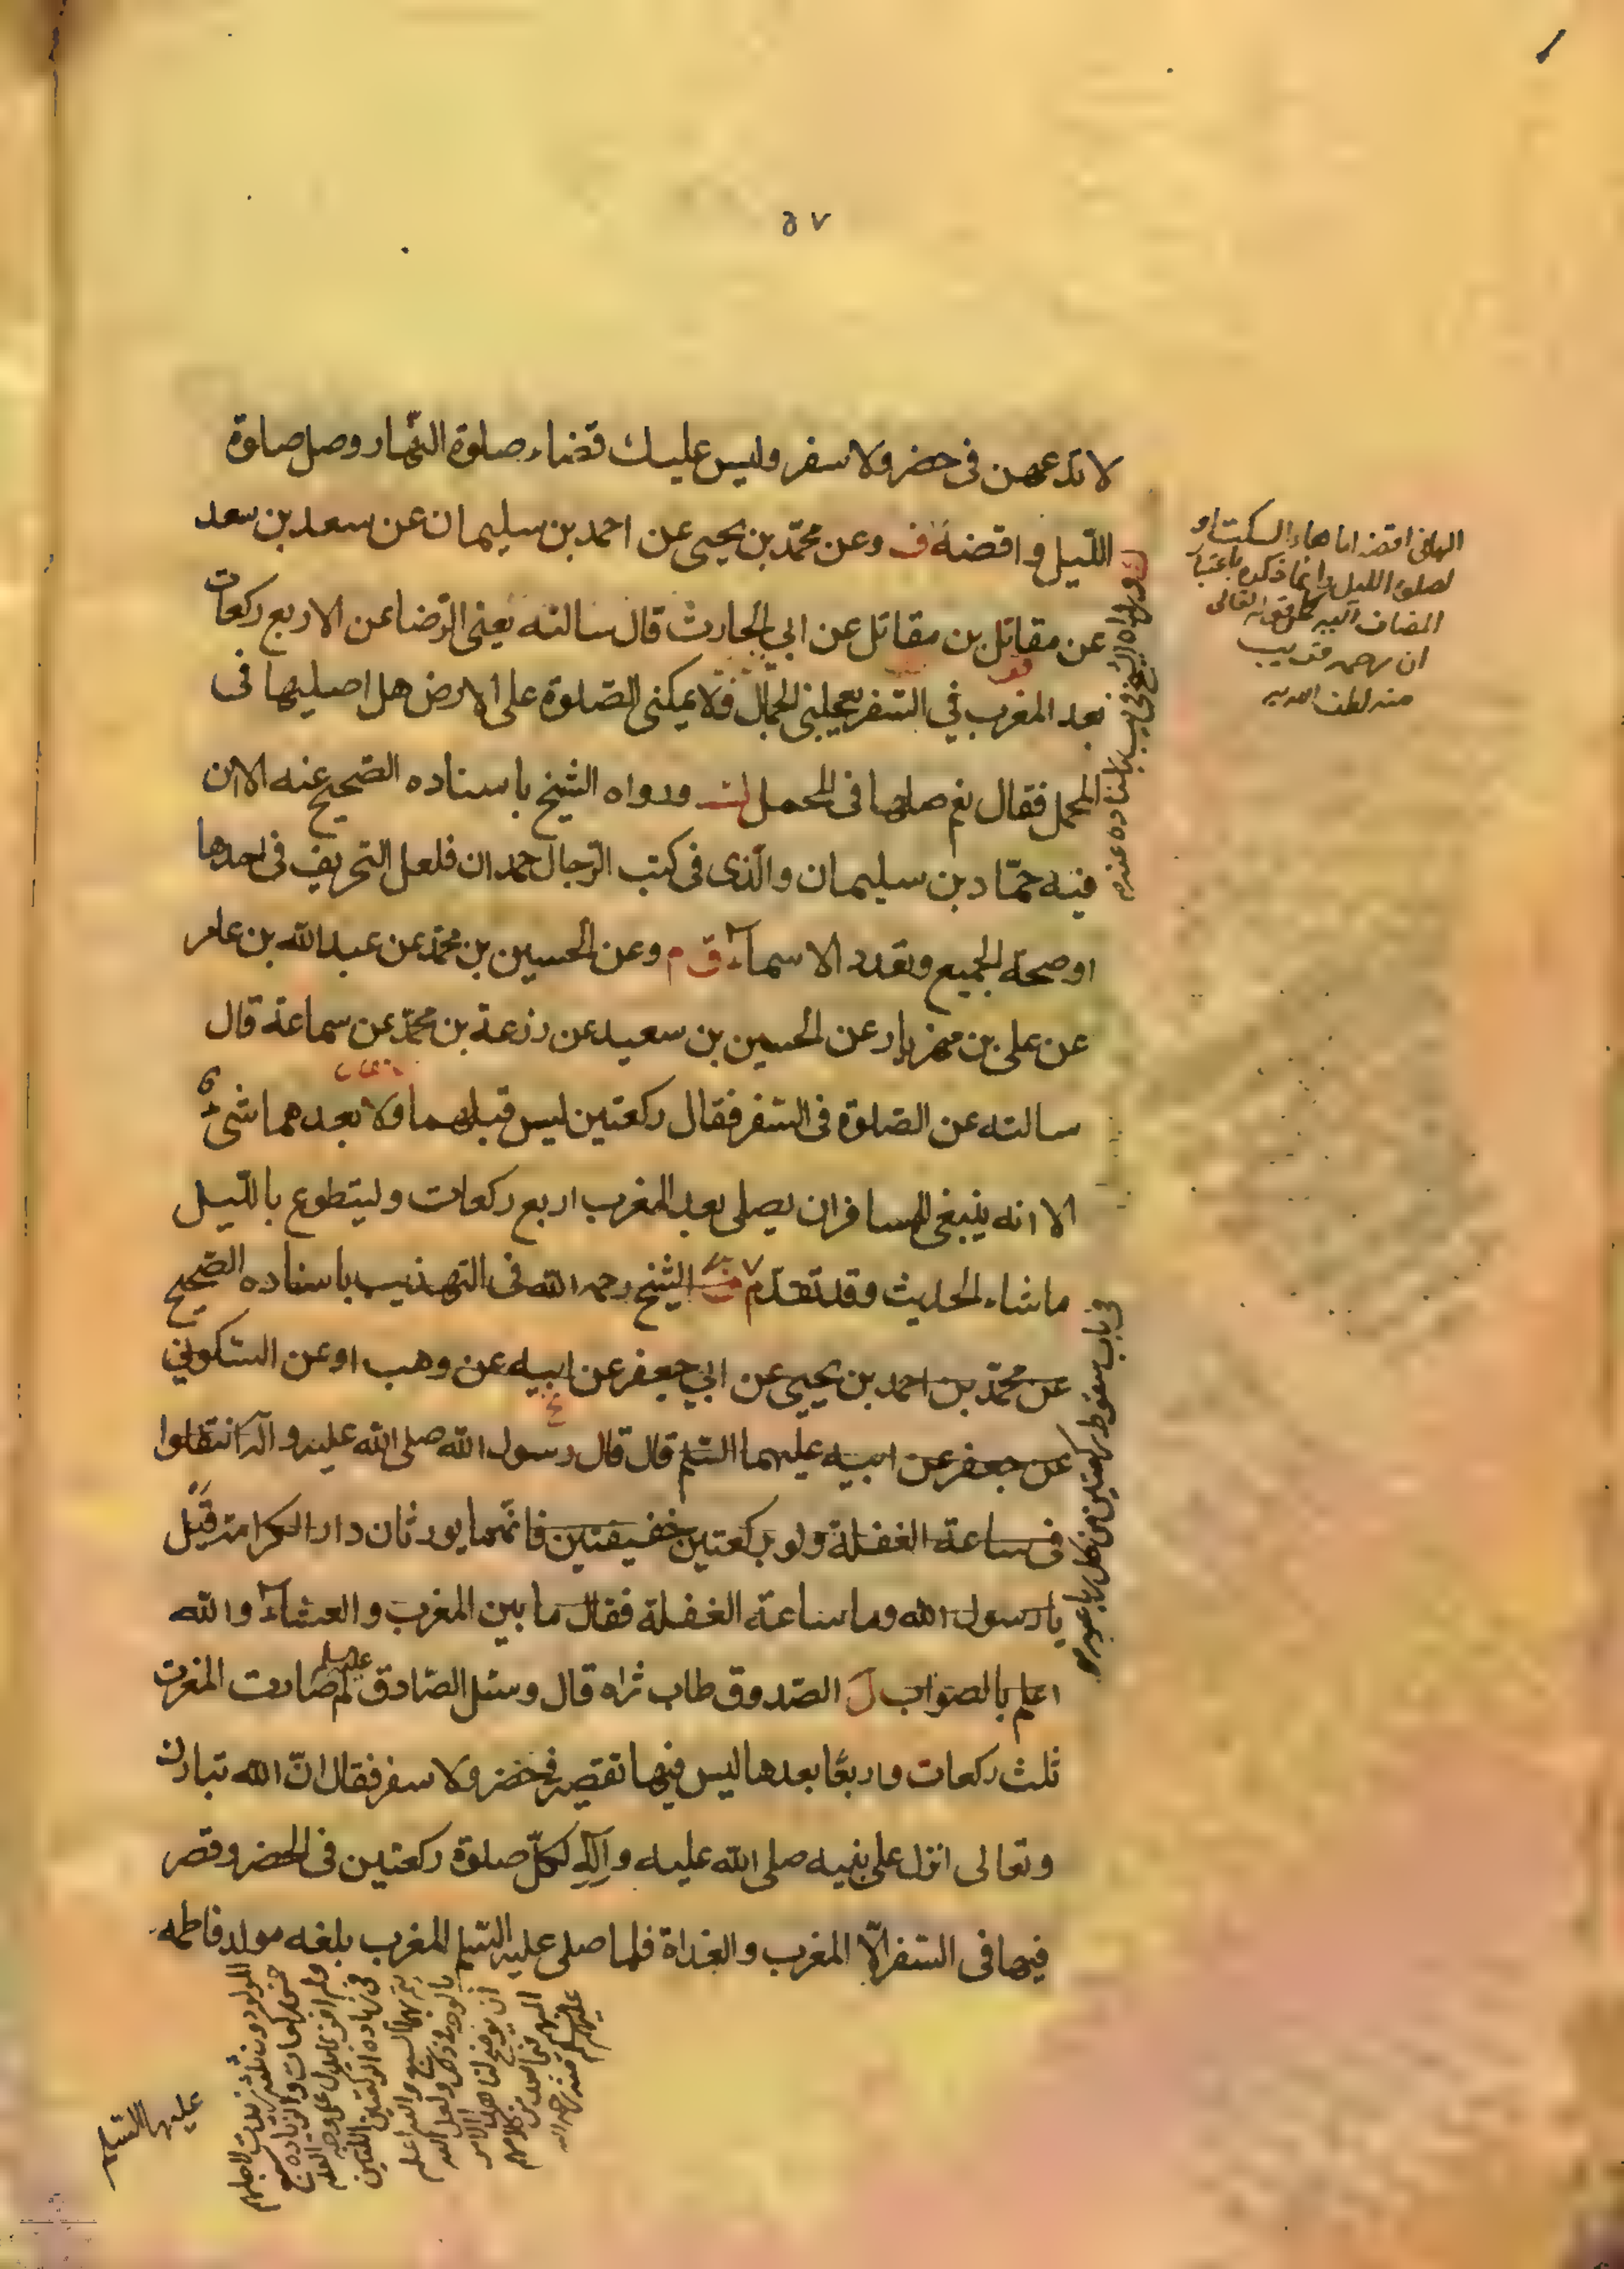 ٥٧
لا تدعهن فى حضر ولا سفر وليس عليك قضاء صلوة النّهار وصل صلوة
اللّيل واقضه ف وعن محمّد بن يحيى عن احمد بن سليمان عن سعد بن سعد
عن مقاتل بن مقاتل عن ابي الحارث قال سالته يعنى الرّضا عن الاربع ركعات
بعد المغرب في السّفر يعجلنى الجمّال فلا يمكنى الصّلوة على الارض هل اصليها فى
المحمل فقال نعم صلها فى المحمل ورواه الشّيخ باسناده الصّحيح عنه الا ان
فيه حمّاد بن سليمان والّذى فى كتب الرّجال حمدان فلعل التّحريف فى احدها
او صحة الجميع وتعدد الاسماء ق م وعن الحسين بن محمّد عن عبدالله بن عامر
عن على بن مهزيار عن الحسين بن سعيد عن زرعة بن محمّد عن سماعة قال
سالته عن الصّلوة فى السّفر فقال ركعتين ليس قبلهما ولا بعدهما شىء
الا انه ينبغى للمسافر ان يصلى بعد المغرب اربع ركعات وليتطوع باللّيل
ماشاء الحديث وقد تقدّم الشّيخ رحمه الله فى التهذيب باسناده الصّحيح
عن محمّد بن احمد بن يحيى عن ابي جعفر عن ابيه عن وهب او عن السّكوني
عن جعفر عن ابيه عليهما السّلم قال قال رسول الله صلى الله عليه وآله تنفلوا
فى ساعة الغفلة ولو بركعتين خفيفتين فانّهما يورثان دار الكرامة قيل
يا رسول الله وما ساعة الغفلة فقال ما بين المغرب والعشاء والله
اعلم بالصّواب ل الصّدوق طاب ثراه قال وسئل الصّادق عليه السلم لم صارت المغرب
ثلث ركعات واربعًا بعدها ليس فيها تقصير فى حضر ولا سفر فقال انّ الله تبارك
وتعالى انزل على نبيه صلى الله عليه وآله لكلّ صلوة ركعتين فى الحضر وقصر
فيها فى السّفر الّا المغرب والغداة فلما صلى عليه السّلم المغرب بلغه مولد فاطمه
عليها السّلم
الهاء فى اقضه اما هاء السكت او
لصلوة الليل وانما ذكره باعتبار
المضاف اليه كقوله تعالى
ان رحمه قريب
منه لطف الله به
ورواه الشيخ فى يب باسناده عنه
فى باب سقوط ركعتين من كل رباعية